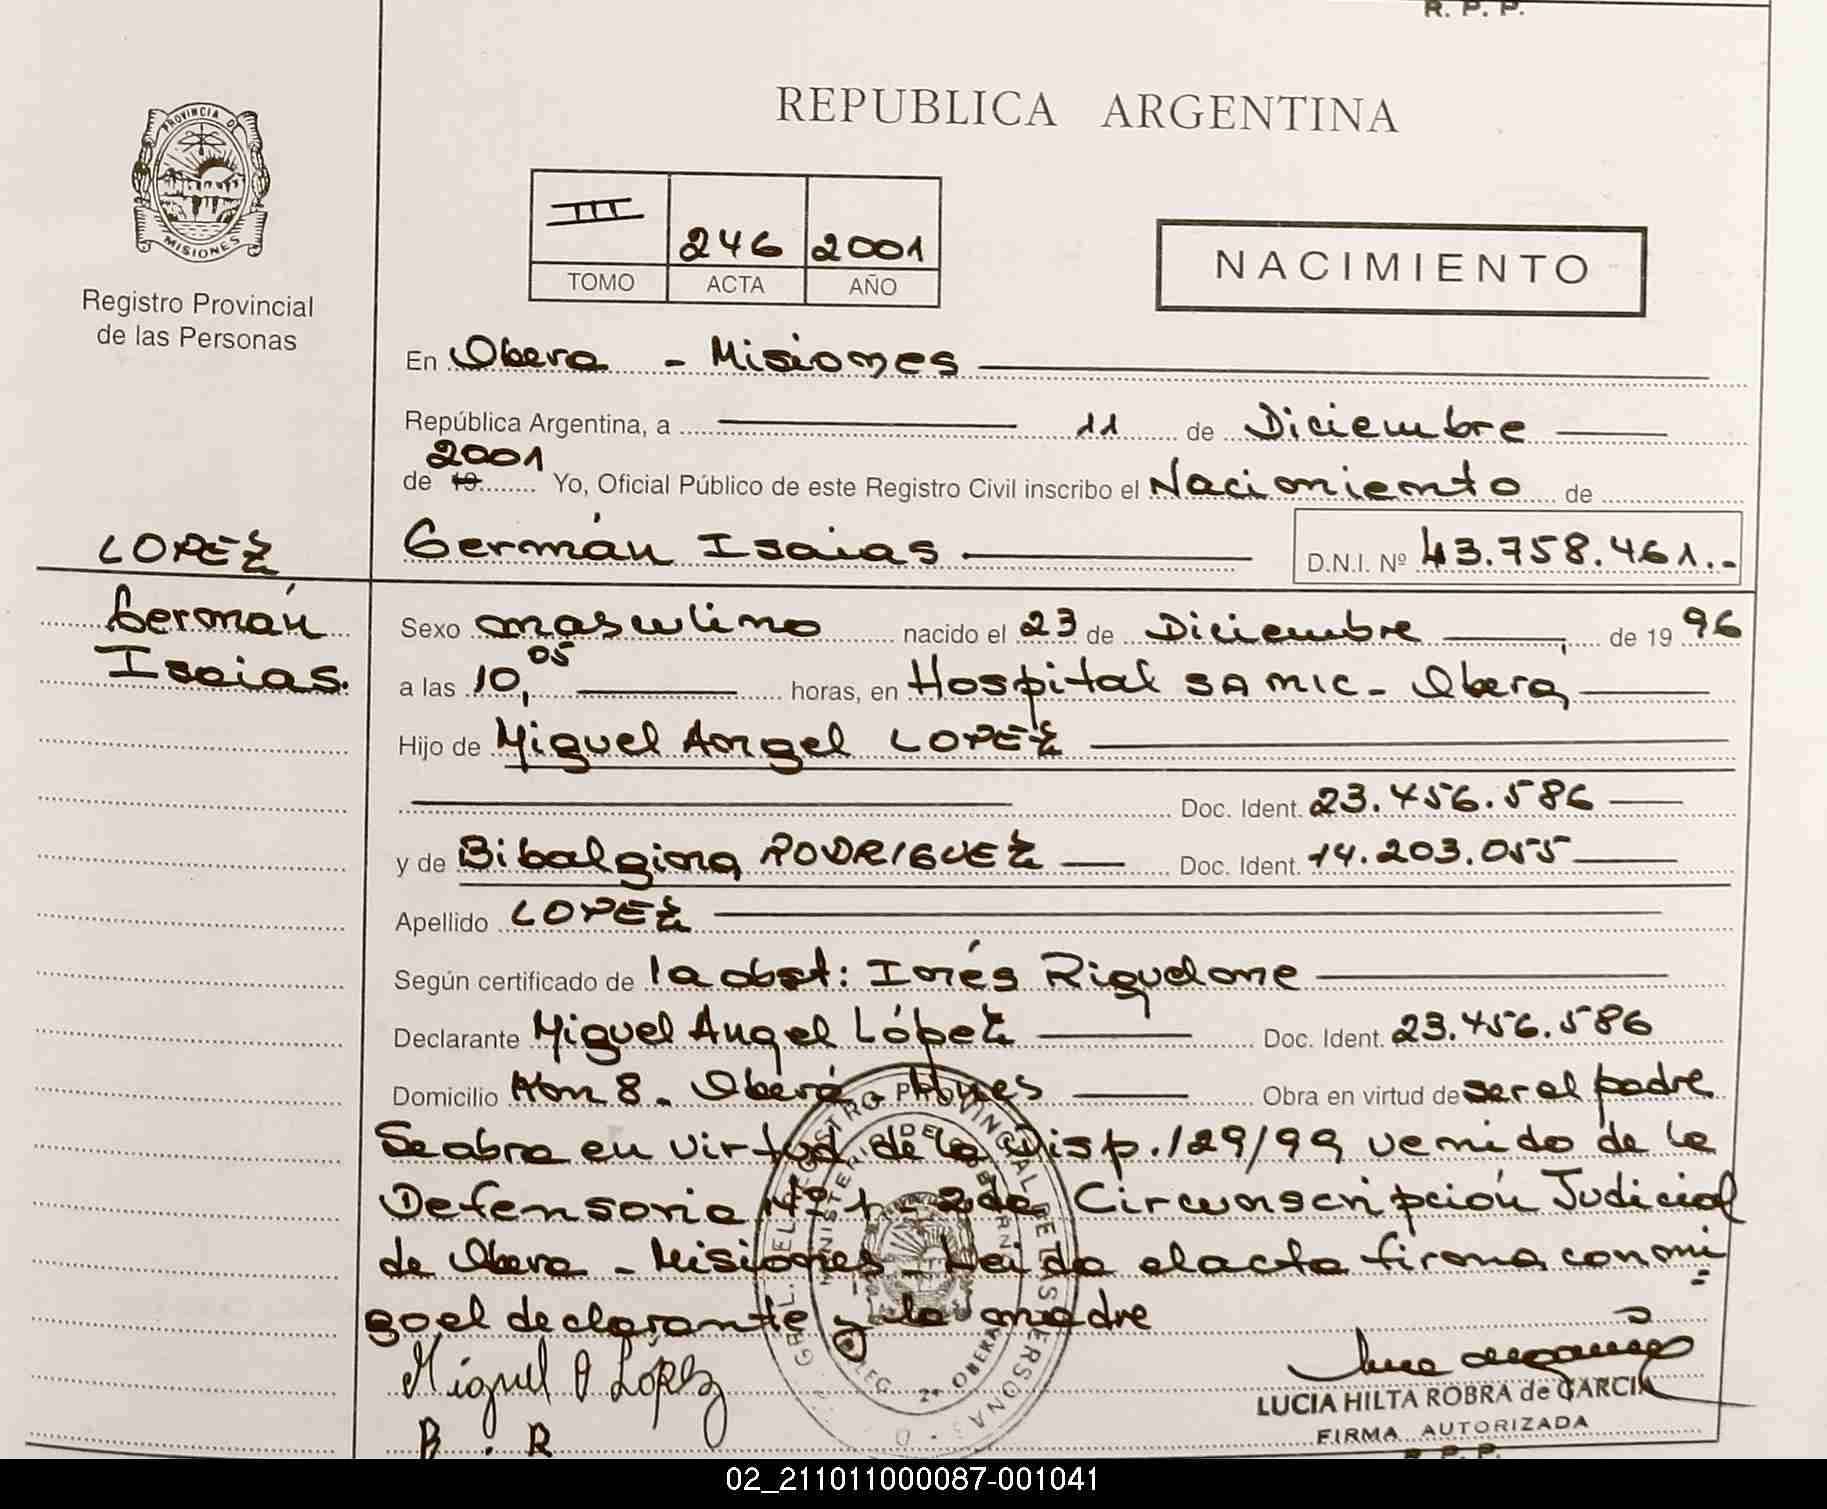 R. P. P.
PROVINCIA DE
MISIONES
Registro Provincial
de las Personas
REPUBLICA ARGENTINA
III 246 2001
TOMO ACTA AÑO
NACIMIENTO
En Obera - Misiones
República Argentina, a 11 de Diciembre
2001
de 19 Yo, Oficial Público de este Registro Civil inscribo el Nacimiento de
LOPEZ
Germán Isaias D.N.I. Nº 43.758.461.-
Germán
Isaias.
Sexo masculino nacido el 23 de Diciembre de 19 96
a las 10,05 horas, en Hospital SAMIC - Obera,
Hijo de Miguel Angel LOPEZ
Doc. Ident. 23.456.586
y de Bibalgina RODRIGUEZ Doc. Ident. 14.203.055
Apellido LOPEZ
Según certificado de la obst: Inés Riquelme
Declarante Miguel Angel López Doc. Ident. 23.456.586
Domicilio Km 8 - Oberá - Mnes Obra en virtud de ser el padre
Se abra en virtud de la Disp. 129/99 venido de la
Defensoria Nº 1 - 2da Circunscripción Judicial
de Obera - Misiones - Leida el acta firma conmi
go el declarante y la madre
Miguel A López
B. R
GRAL. DEL REGISTRO PROVINCIAL DE LAS PERSONAS
MINISTERIO DE GOBIERNO
DELEG. 2ª OBERA
LUCIA HILTA ROBRA de GARCIA
FIRMA AUTORIZADA
R. P. P.
02_211011000087-001041